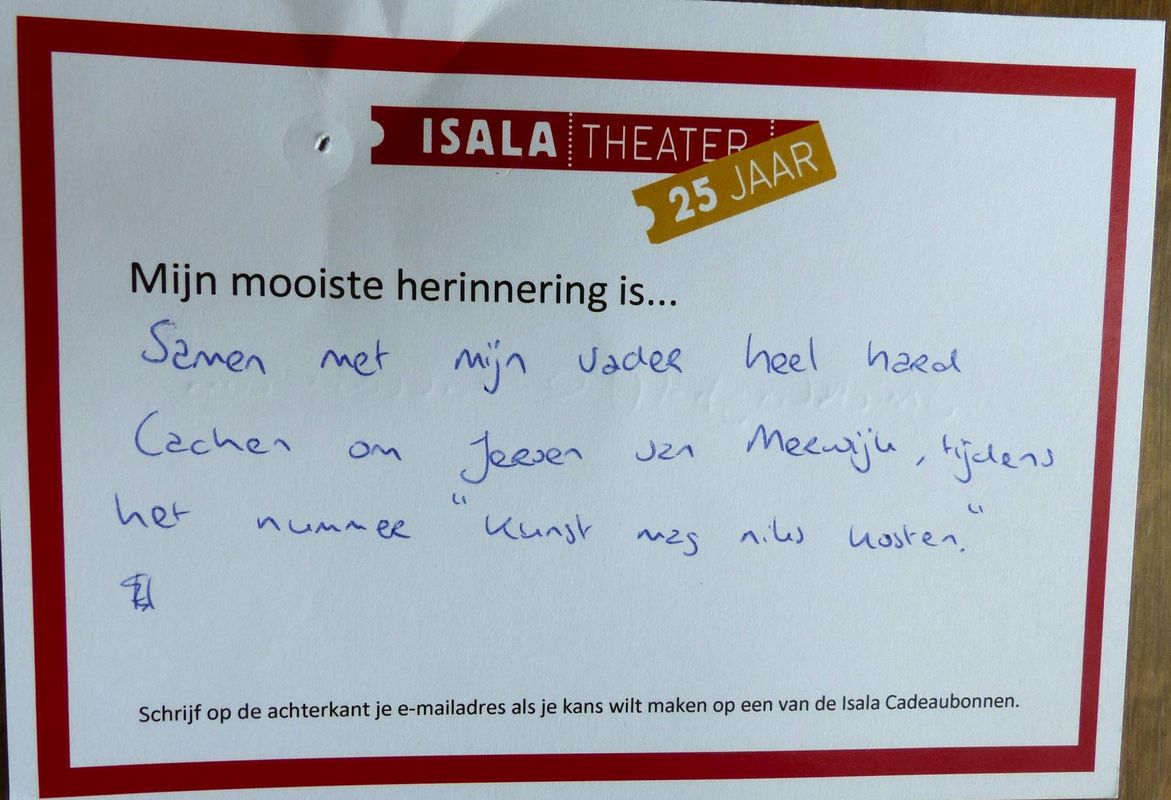 ISALA THEATER
25 JAAR
Mijn mooiste herinnering is...
Samen met mijn vader heel hard
Lachen om Jeroen van Merwijk, tijdens
het nummer "Kunst mag niks kosten."
Schrijf op de achterkant je e-mailadres als je kans wilt maken op een van de Isala Cadeaubonnen.